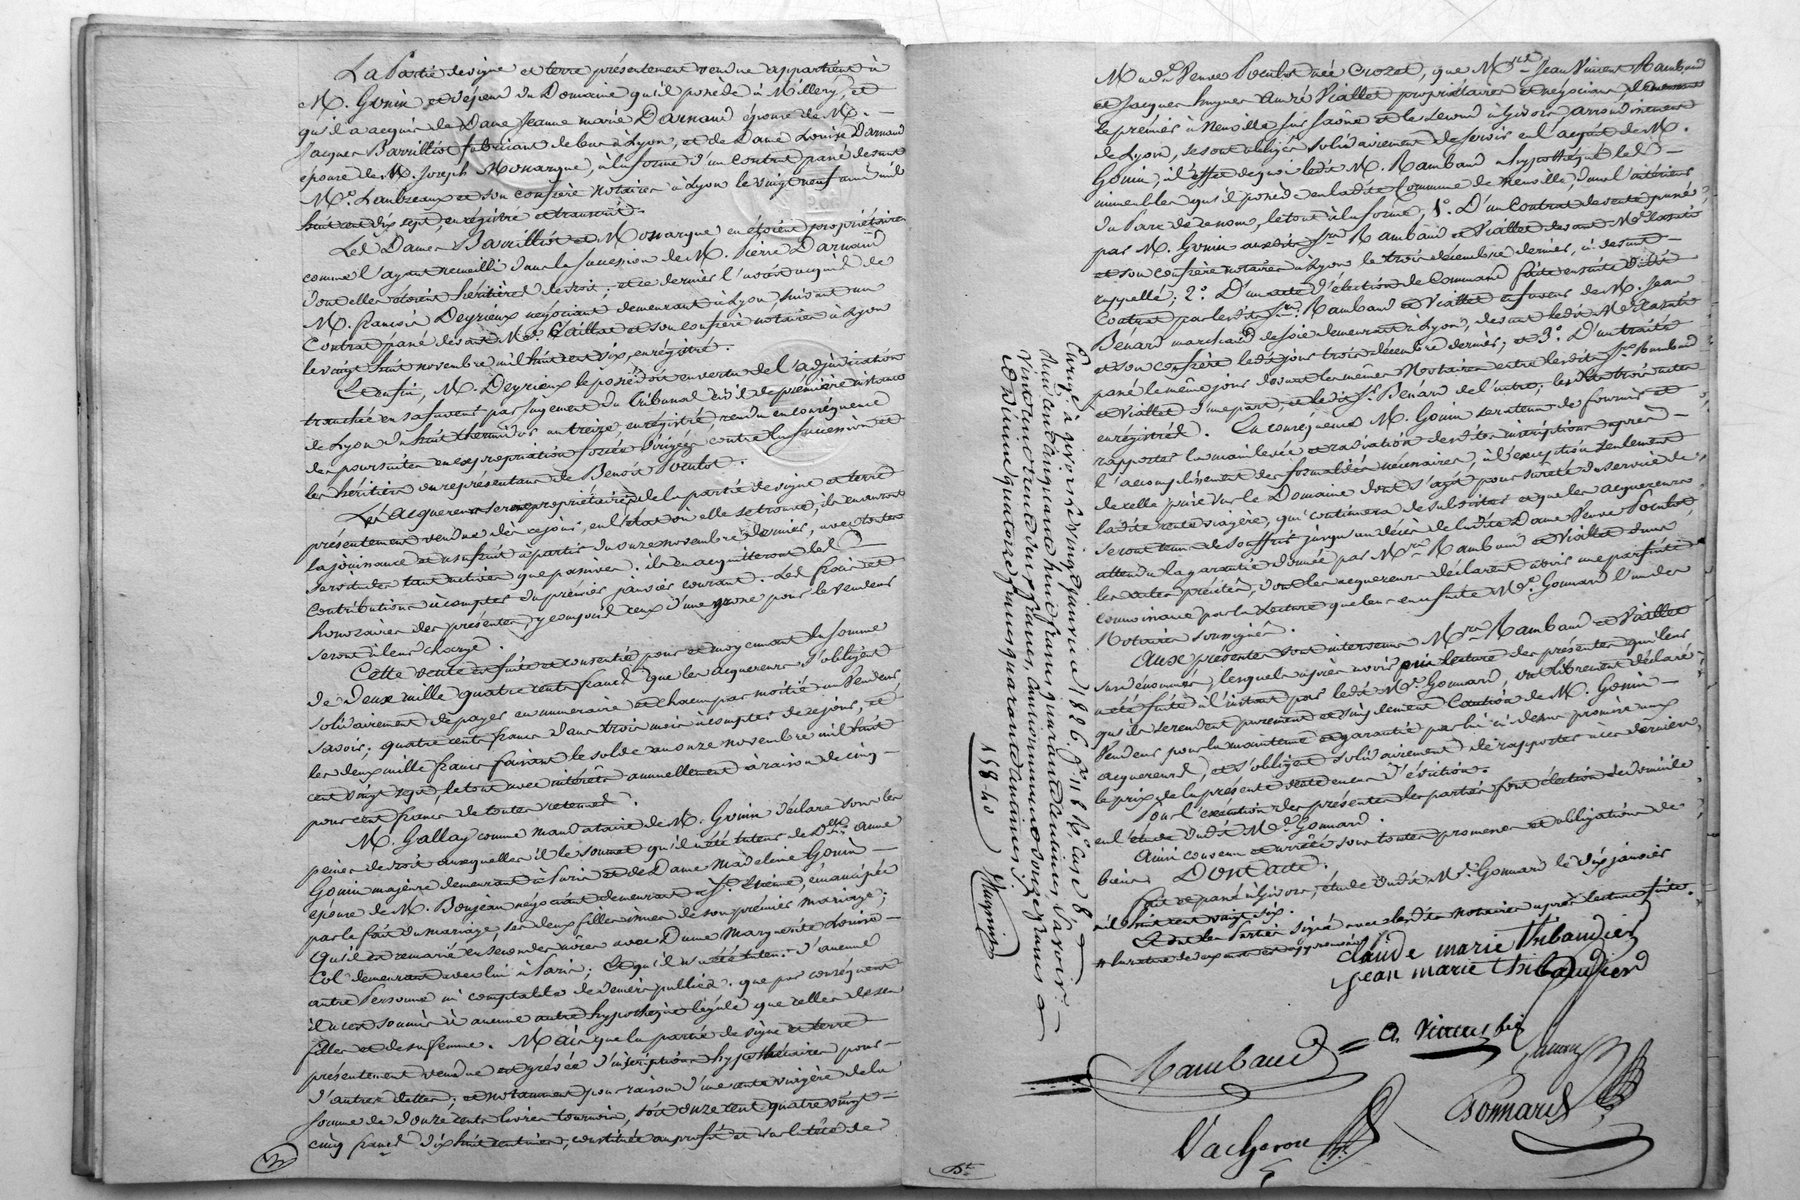 La Partie de vigne et terre présentement vendue appartient à
M. Gonin et dépend du Domaine qu'il possède à Millery, et
qu'il a acquis de Dame Jeanne marie Darnaud épouse de M.
Jacques Barrilliot fabricant de bas à Lyon, et de Dame Louise Darnaud
epouse de M. Joseph Monargue, à la forme d'un Contrat passé devant
Me. Lambreaux et son confrère notaires à Lyon le vingt neuf mil
huit cent dix sept, enrégistré et transcrit.
Les Dames Barrilliot et Monargue en étoient propriétaires
comme l'ayant recueilli dans la succession de M. Pierre Darnaud
dont elles étoient héritières de droit; et ce dernier l'avoit acquis de
M. françois Deyrieux négociant, demeurant à Lyon suivant un
Contrat passé devant Me. Caillat et son confrère notaires à Lyon
le vingt huit novembre mil huit cent six, enrégistré.
Et enfin, M. Deyrieux le possédoit en vertu de l'adjudication
tranchée en sa faveur par Jugement du Tribunal civil de première instance
de Lyon du huit thermidor an treize, enrégistré, rendu en conséquence
des poursuites en expropriation forcée dirigées contre la succession et
les héritiers ou représentans de Benoit Poulot.
Les acquereurs seront propriétaires de la partie de vigne et terre
présentement vendue dès ce jour, en l'état où elle se trouve, ils en auront
la jouissance et usufruit à partir du onze novembre dernier, avec toutes
servitudes tant actives que passives: ils en acquitteront les
Contributions à compter du premier janvier courant. Les frais et
honoraires des présentes, y compris ceux d'une grosse pour le vendeur
seront à leur charge.
Cette vente est faite et consentie pour et moyennant la somme
de Deux mille quatre cents francs que les acquereurs s'obligent
solidairement de payer en numéraire et chacun par moitié au Vendeur,
savoir; quatre cents francs dans trois mois à compter de ce jour, et
les deux mille francs faisant le solde au onze novembre mil huit
cent vingt sept, le tout avec intérêts annuellement à raison de cinq
pour cent francs de toutes retenues.
M. Gallay comme mandataire de M. Gonin déclare sous les
peines de droit auxquelles il le soumet qu'il a été tuteur de Dlle. anne
Gonin majeure demeurant à Paris et de Dame Madeleine Gonin
épouse de M. Boujean négociant demeurant à St. Etienne, émancipée
par le fait du mariage, ses deux filles issues de son premier mariage;
qu'il est remarié en secondes nôces avec Dame Marguerite Louise
Col demeurant avec lui à Paris; et qu'il n'a été tuteur d'aucune
autre Personne ni comptable de deniers publics. que par conséquent
il n'est soumis à aucune autre hypothèque légale que celles de ses
filles et de sa femme. Mais que la partie de vigne et terre
présentement vendue est grévée d'inscriptions hypothécaires pour
d'autres dettes; et notamment pour raison d'une rente viagère de la
somme de douze cents livres tournois, soit onze cent quatre vingt
cinq francs dix huit centimes, constituée au profit et sur la tête de
Madme Veuve Poulot née Crozet, que Mrs. Jean Vincent Rambaud
et Jacques hugues André Viallet propriétaires et négocians demeurant
le premier à Neuville sur Saône et le second à Givors, arrondissement
de Lyon, se sont obligés solidairement de servir en l'acquit de M.
Gonin; à l'effet de quoi ledit M. Rambaud a hypothéqué les
immeubles qu'il possède en ladite Commune de Neuville, dans l'intérieur
du Parc de ce nom, le tout à la forme, 1°. D'un Contrat de vente passé
par M. Gonin auxdits Srs. Rambaud et Viallet devant Me.
et son confrère notaires à Lyon le trois décembre dernier, ci-devant
rappellé; 2°. D'un acte d'élection de Command faite ensuite dudit
Contrat par lesdits Srs. Rambaud et Viallet en faveur de M. Jean
Benard marchand de soie demeurant à Lyon, devant ledit Me.
et son confrère ledit jour trois décembre dernier; et 3°. D'un traité
passé le même jour devant les mêmes Notaires entre lesdits Srs. Rambaud
et Viallet d'une part, et ledit Sr. Benard de l'autre; lesdits trois actes
enrégistrés. En conséquence M. Gonin sera tenu de fournir et
rapporter la mainlevée et radiation desdites inscriptions après
l'accomplissement des formalités nécessaires, à l'exception seulement
de celle prise sur le Domaine dont s'agit pour sûreté du service de
ladite rente viagère, qui continuera de subsister et que les acquereurs
seront tenus de souffrir jusqu'au décès de ladite Dame Veuve Poulot,
attendu la garantie donnée par Mrs. Rambaud et Viallet dans
les actes précités, dont les acquereurs déclarent avoir une parfaite
connoissance par la lecture que leur en a faite Me. Gonnard l'un des
Notaires soussignés.
Aux présentes sont intervenus Mrs. Rambaud et Viallet
susdénommés, lesquels après avoir pris lecture des présentes qui leur
a été faite à l'instant par ledit Me. Gonnard, ont librement déclaré
qu'ils se rendent purement et simplement Cautions de M. Gonin
Vendeur pour la maintenue et garantie par lui ci-dessus promise aux
acquereurs, et s'obligent solidairement de rapporter à ces derniers
le prix de la présente vente en cas d'éviction.
Pour l'exécution des présentes les parties font élection de domicile
en l'étude dudit Me. Gonnard.
Ainsi convenu et arrêté sous toutes promesses et obligations de
biens. Dont acte.
Fait et passé à Givors, étude dudit Me. Gonnard le dix janvier
mil huit cent vingt six.
Et ont les Parties signé avec lesdits notaires après lecture faite.
claude marie thibaudier
jean marie thibaudier
Rambaud
Vacheron
Gonnard
Enregé à givors le vingt janvier 1826. fo. 118 Ro. Case 8
Reçu Cent cinquante huit francs quarante centimes Savoir
cent
et dixième quatorze francs quarante centimes
158-40